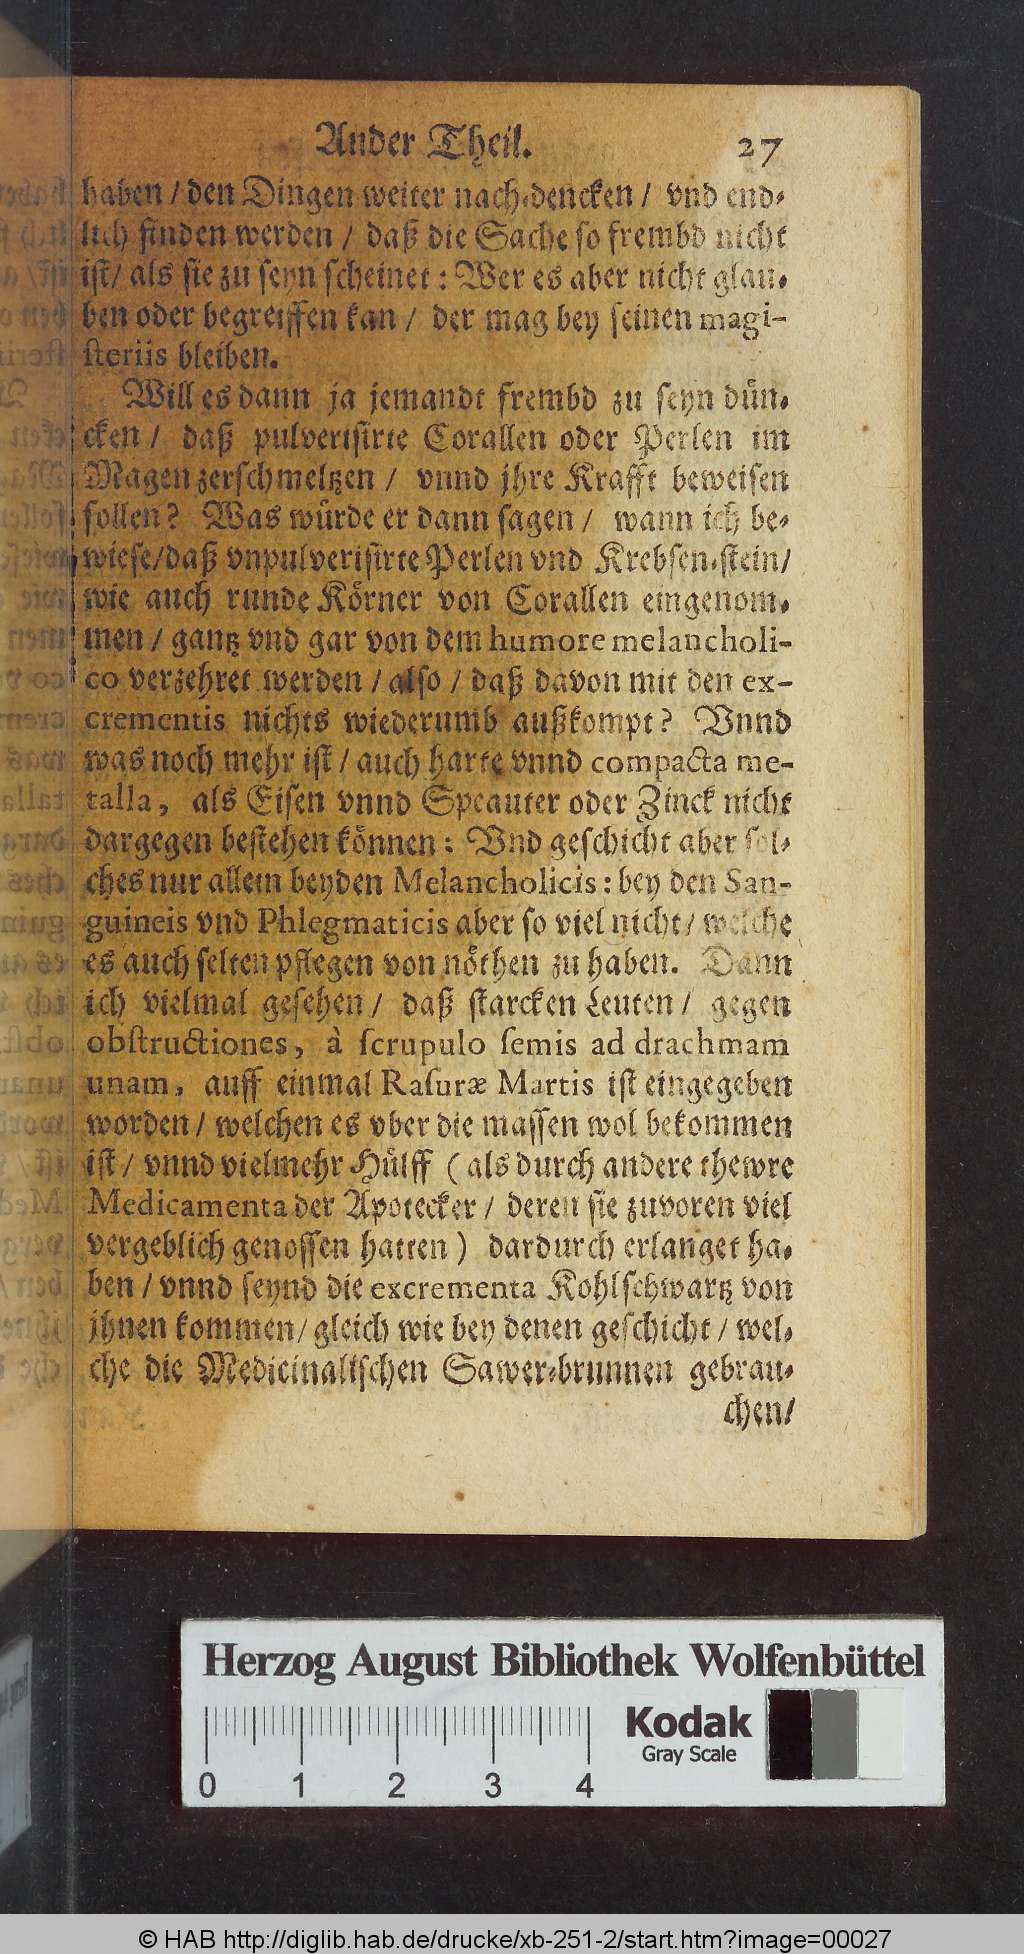 Ander Theil. 27
haben / den Dingen weiter nach-dencken / vnd end-
lich finden werden / daß die Sache so frembd nicht
ist / als sie zu seyn scheinet : Wer es aber nicht glau-
ben oder begreiffen kan / der mag bey seinen magi-
steriis bleiben.
Will es dann ja jemandt frembd zu seyn dün-
cken / daß pulverisirte Corallen oder Perlen im
Magen zerschmeltzen / vnnd jhre Krafft beweisen
sollen? Was würde er dann sagen / wann ich be-
wiese / daß vnpulverisirte Perlen vnd Krebsen-stein /
wie auch runde Körner von Corallen eingenom-
men / gantz vnd gar von dem humore melancholi-
co verzehret werden / also / daß davon mit den ex-
crementis nichts wiederumb außkompt? Vnnd
was noch mehr ist / auch harte vnnd compacta me-
talla, als Eisen vnnd Speauter oder Zinck nicht
dargegen bestehen können : Vnd geschicht aber sol-
ches nur allein bey den Melancholicis : bey den San-
guineis vnd Phlegmaticis aber so viel nicht / welche
es auch selten pflegen von nöthen zu haben. Dann
ich vielmal gesehen / daß starcken Leuten / gegen
obstructiones, à scrupulo semis ad drachmam
unam, auff einmal Rasuræ Martis ist eingegeben
worden / welchen es vber die massen wol bekommen
ist / vnnd vielmehr Hülff ( als durch andere thewre
Medicamenta der Apotecker / deren sie zuvoren viel
vergeblich genossen hatten ) dardurch erlanget ha-
ben / vnnd seynd die excrementa Kohlschwartz von
jhnen kommen / gleich wie bey denen geschicht / wel-
che die Medicinalischen Sawer-brunnen gebrau-
chen /
Herzog August Bibliothek Wolfenbüttel
Kodak
Gray Scale
0 1 2 3 4
© HAB http://diglib.hab.de/drucke/xb-251-2/start.htm?image=00027